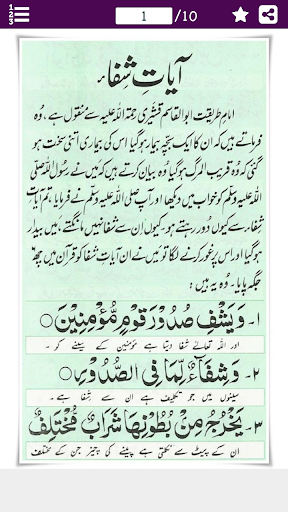 1
2
3
1 /10
آیاتِ شِفاء
امامِ طریقت ابوالقاسم قشیری رحمۃ اللہ علیہ سے منقول ہے، وُہ
فرماتے ہیں کہ ان کا ایک بچّہ بیمار ہو گیا اس کی بیماری اتنی سخت ہو
گئی کہ وُہ قریب المرگ ہو گیا وہ بیان کرتے ہیں کہ میں نے رسول اللہ صلی
اللہ علیہ وسلّم کو خواب میں دیکھا اور آپ صلی اللہ علیہ وسلّم نے فرمایا، تم آیاتِ
شِفاء سے کیوں دُور رہتے ہو۔ کیوں اِن سے شفا نہیں مانگتے، میں بیدار
ہو گیا اور اس پر غور کرنے لگا تو میں نے ان آیاتِ شفا کو قرآن میں چھ
جگہ پایا۔ وُہ یہ ہیں:
۱- وَيَشْفِ صُدُوْرَ قَوْمٍ مُّؤْمِنِيْنَ ○
اور اللہ تعالیٰ شفا دیتا ہے مؤمنین کے سینے کو -
۲- وَشِفَآءٌ لِّمَا فِی الصُّدُوْرِ ○
سینوں میں جو تکلیف ہے ان سے شفا ہے -
۳- يَخْرُجُ مِنْۢ بُطُوْنِهَا شَرَابٌ مُّخْتَلِفٌ
ان کے پیٹ سے نکلتی ہے پینے کی چیز جن کے مختلف